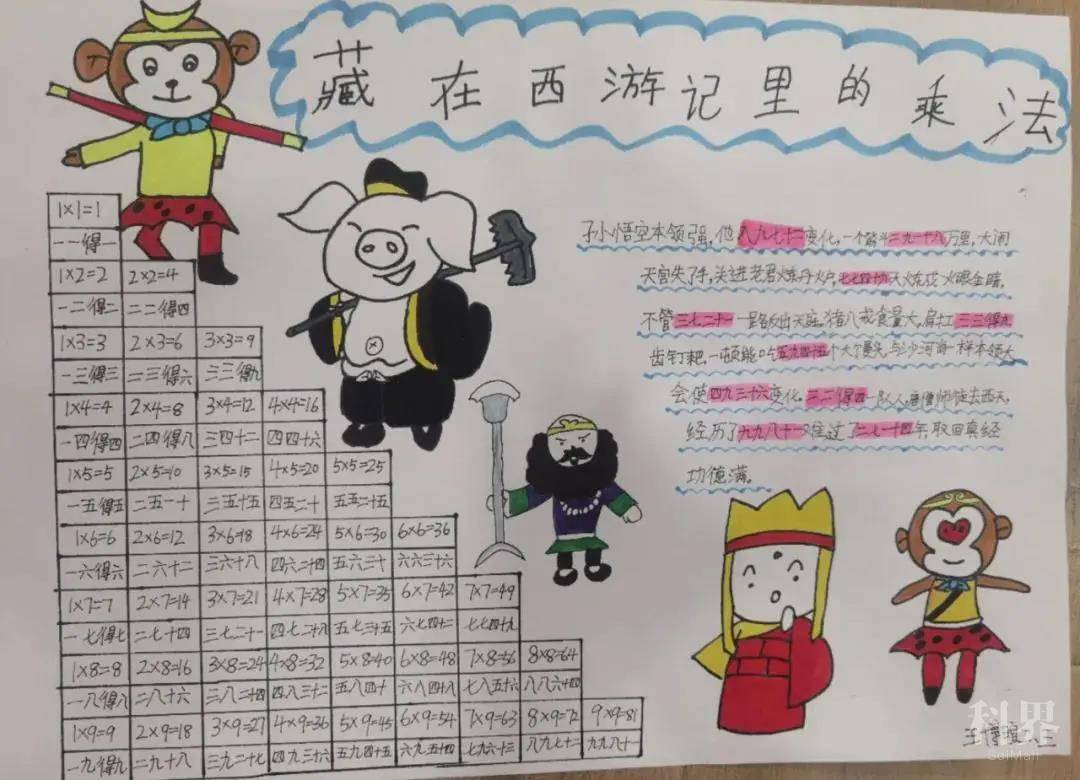 藏在西游记里的乘法
孙小悟空本领强,他八九七十二变化,一个筋斗二九一十八万里,大闹
天宫失了手,关进老君炼丹炉,七七四十九天炼成火眼金睛,
不管三七二十一一路反出天庭。猪八戒食量大,肩扛三三得九
齿钉耙,一顿能吃五九四十五个大馒头,与沙河尚一样本领大
会使四九三十六变化,二二得四一队人,唐僧师徒去西天,
经历了九九八十一难过了二七一十四年,取回真经
功德满。
1×1=1
一一得一
1×2=2 2×2=4
一二得二 二二得四
1×3=3 2×3=6 3×3=9
一三得三 二三得六 三三得九
1×4=4 2×4=8 3×4=12 4×4=16
一四得四 二四得八 三四十二 四四十六
1×5=5 2×5=10 3×5=15 4×5=20 5×5=25
一五得五 二五一十 三五十五 四五二十 五五二十五
1×6=6 2×6=12 3×6=18 4×6=24 5×6=30 6×6=36
一六得六 二六十二 三六十八 四六二十四 五六三十 六六三十六
1×7=7 2×7=14 3×7=21 4×7=28 5×7=35 6×7=42 7×7=49
一七得七 二七十四 三七二十一 四七二十八 五七三十五 六七四十二 七七四十九
1×8=8 2×8=16 3×8=24 4×8=32 5×8=40 6×8=48 7×8=56 8×8=64
一八得八 二八十六 三八二十四 四八三十二 五八四十 六八四十八 七八五十六 八八六十四
1×9=9 2×9=18 3×9=27 4×9=36 5×9=45 6×9=54 7×9=63 8×9=72 9×9=81
一九得九 二九十八 三九二十七 四九三十六 五九四十五 六九五十四 七九六十三 八九七十二 九九八十一
王博
科界